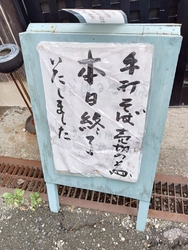 手打そば売切の為
本日終了
いたしました